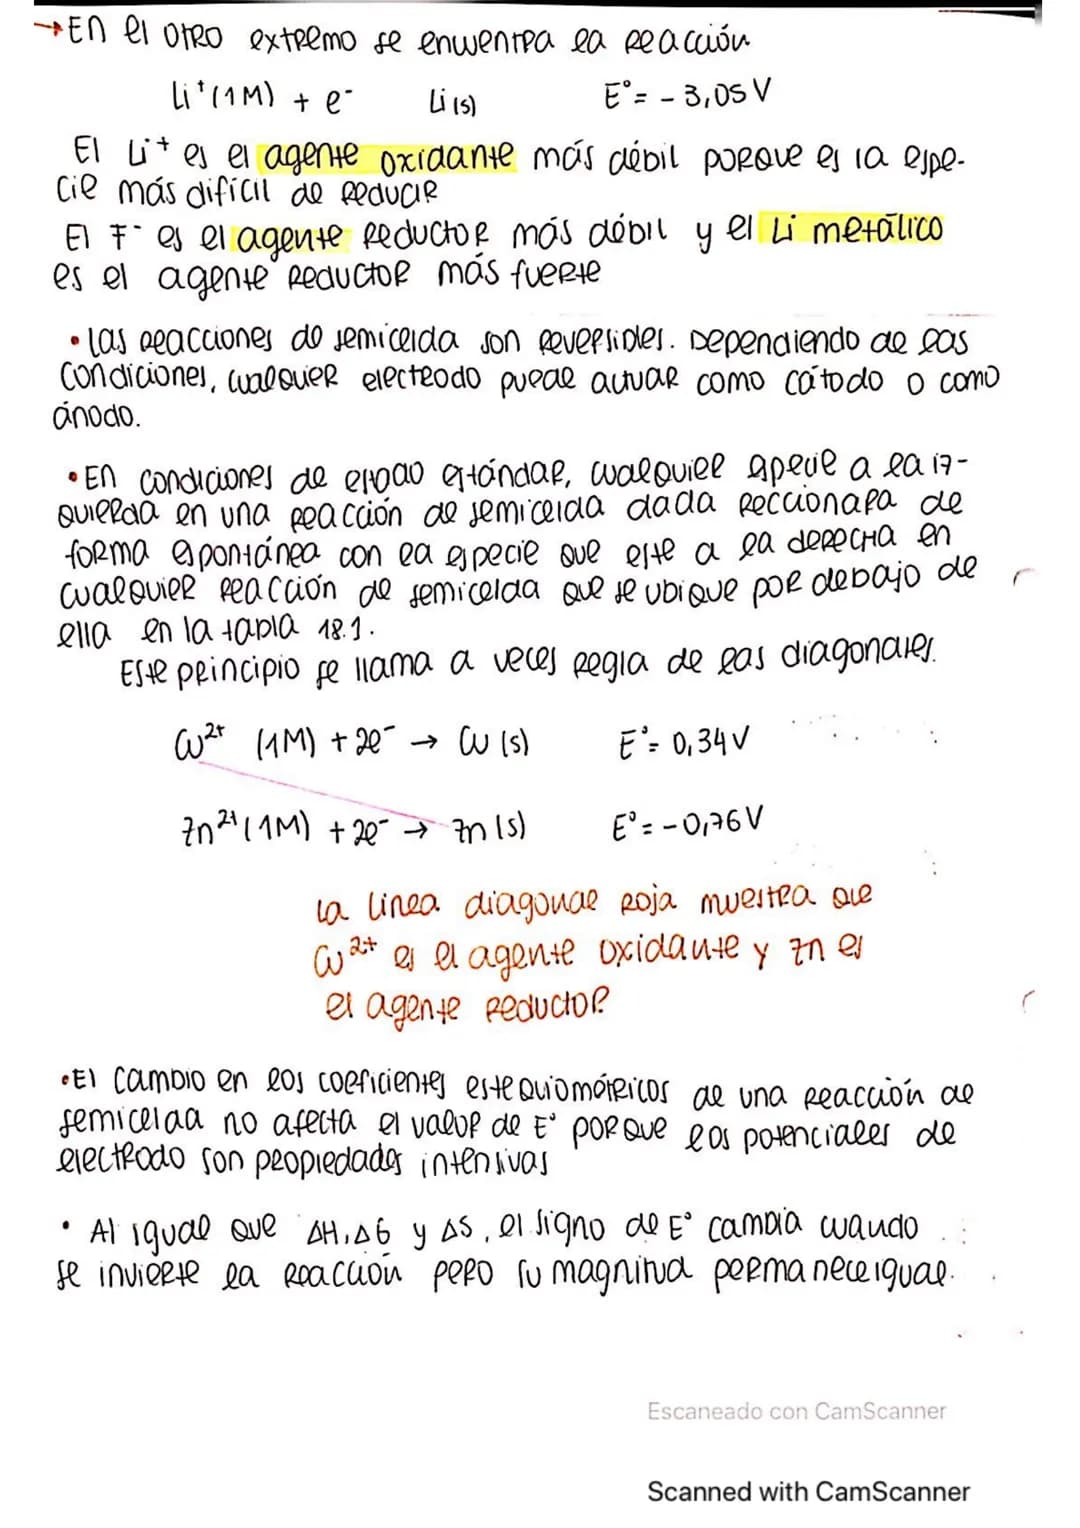 →En el otro extremo se encuentra la reacción
Li⁺(1M) + e⁻ Li(s) E° = -3,05 V
El Li⁺ es el agente oxidante más débil porque es la espe-
cie más difícil de reducir
El F⁻ es el agente reductor más débil y el Li metálico
es el agente reductor más fuerte
• las reacciones de semicelda son reversibles. Dependiendo de las
condiciones, cualquier electrodo puede actuar como cátodo o como
ánodo.
• En condiciones de estándar, cualquier especie a la iz-
quierda en una reacción de semicelda dada reccionara de
forma espontánea con la especie que este a la derecha en
cualquier reacción de semicelda que se ubique por debajo de
ella en la tabla 18.1.
Este principio se llama a veces regla de las diagonales.
Cu²⁺ (1M) + 2e⁻ → Cu (s) E° = 0,34 V
Zn²⁺ (1M) + 2e⁻ → Zn (s) E° = -0,76 V
La linea diagonal roja muestra que
Cu²⁺ es el agente oxidante y Zn es
el agente reductor
• El cambio en los coeficientes estequiométricos de una reacción de
semicelda no afecta el valor de E° porque los potenciales de
electrodo son propiedades intensivas
• Al igual que ΔH, ΔG y ΔS, el signo de E° cambia cuando
se invierte la reacción pero su magnitud permanece igual.
Escaneado con CamScanner
Scanned with CamScanner